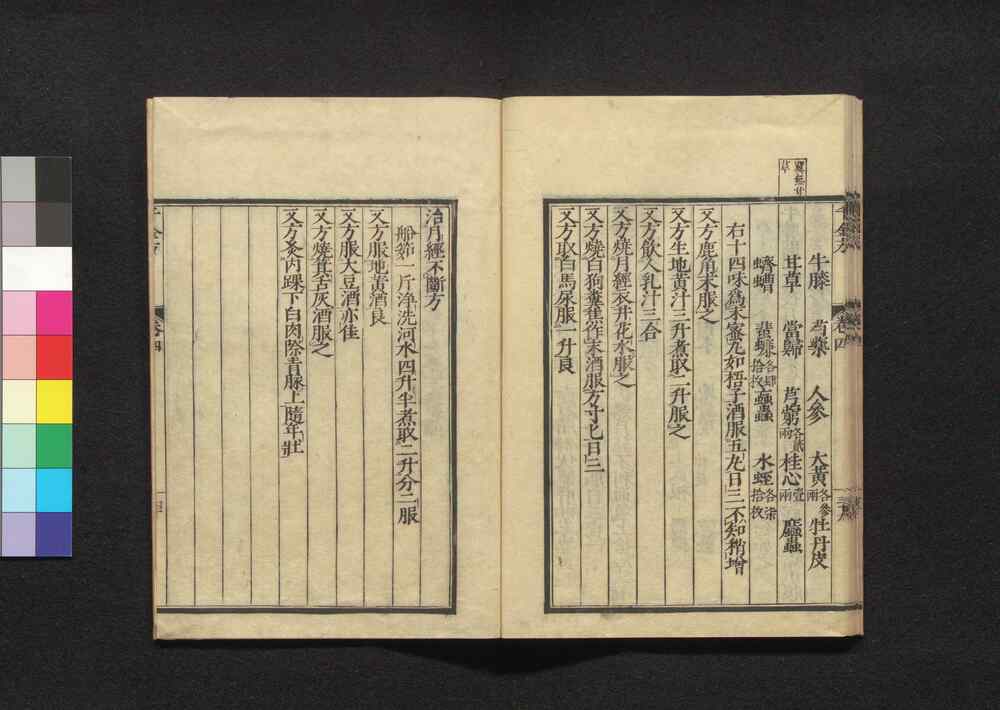 牛膝 芍藥 人參 大黃各參兩 牡丹皮
甘草 當歸 芎藭各貳兩 桂心壹兩 䗪蟲
蠐螬 蜚蠊各肆拾枚 蝱蟲 水蛭各柒拾枚
右十四味爲末蜜丸如梧子酒服五丸日三不知稍增
又方鹿角末服之
又方生地黃汁三升煮取二升服之
又方飲人乳汁三合
又方燒月經衣井花水服之
又方燒白狗糞焦作末酒服方寸匕日三
又方取白馬尿服一升良
治月經不斷方
船茹一斤淨洗河水四升半煮取二升分二服
又方服地黃酒良
又方服大豆酒亦佳
又方燒箕舌灰酒服之
又方灸內踝下白肉際青脉上隨年壯
千金方
卷四